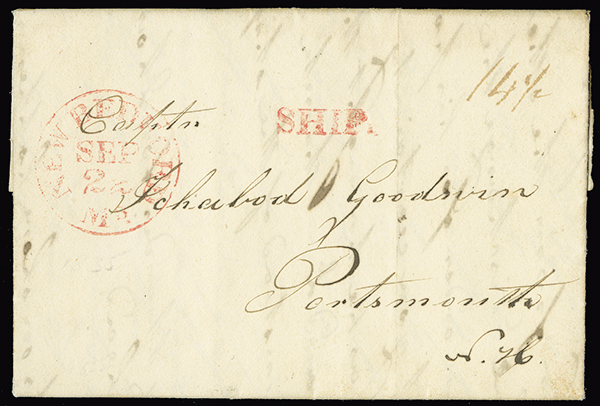 NEW BEDFORD
SEP
MS.
SHIP.
14½
Captn
Ichabod Goodwin
Portsmouth
N. H.